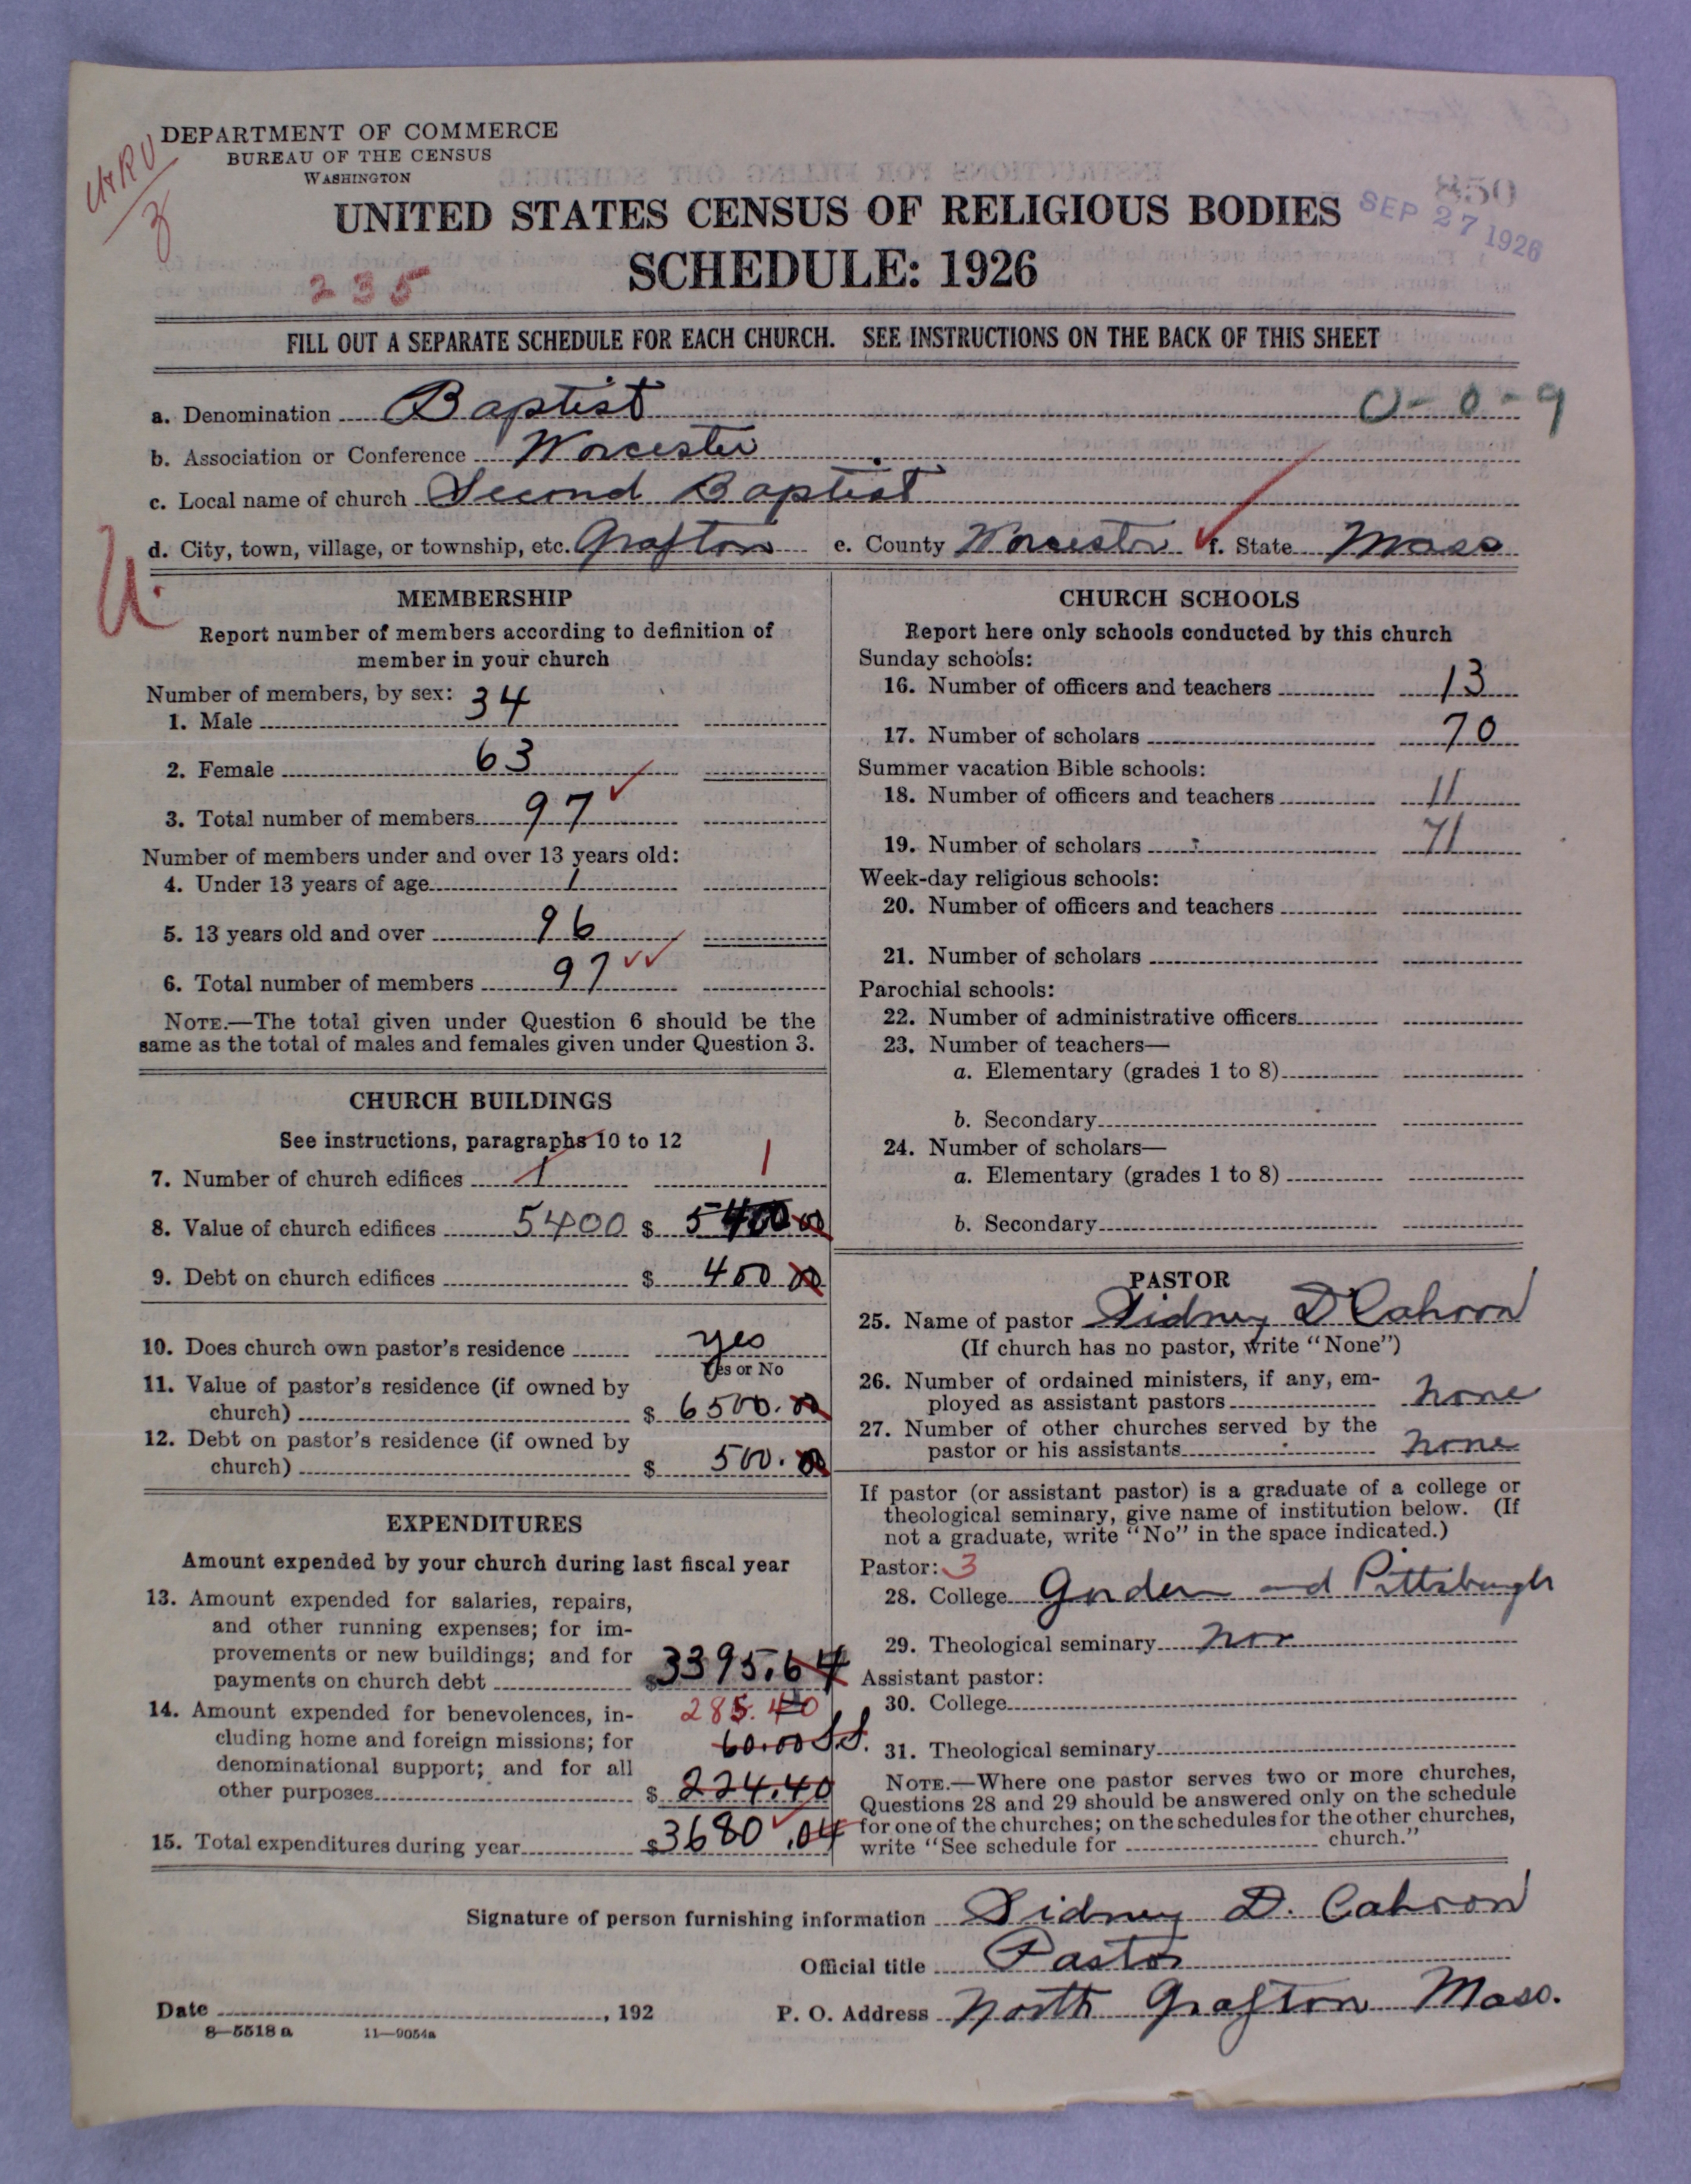 DEPARTMENT OF COMMERCE
BUREAU OF THE CENSUS
WASHINGTON
850
SEP 27 1926
UNITED STATES CENSUS OF RELIGIOUS BODIES
SCHEDULE: 1926
235
FILL OUT A SEPARATE SCHEDULE FOR EACH CHURCH. SEE INSTRUCTIONS ON THE BACK OF THIS SHEET
a. Denomination Baptist 0-0-9
b. Association or Conference Worcester
c. Local name of church Second Baptist
d. City, town, village, or township, etc. Grafton e. County Worcester f. State Mass
U.
MEMBERSHIP
Report number of members according to definition of
member in your church
Number of members, by sex:
1. Male 34
2. Female 63
3. Total number of members 97
Number of members under and over 13 years old:
4. Under 13 years of age 1
5. 13 years old and over 96
6. Total number of members 97
NOTE.—The total given under Question 6 should be the
same as the total of males and females given under Question 3.
CHURCH BUILDINGS
See instructions, paragraphs 10 to 12
7. Number of church edifices 1 1
8. Value of church edifices 5400 $ 5400.00
9. Debt on church edifices $ 400 00
10. Does church own pastor's residence yes
Yes or No
11. Value of pastor's residence (if owned by
church) $ 6500.00
12. Debt on pastor's residence (if owned by
church) $ 500.00
EXPENDITURES
Amount expended by your church during last fiscal year
13. Amount expended for salaries, repairs,
and other running expenses; for im-
provements or new buildings; and for
payments on church debt $3395.64
14. Amount expended for benevolences, in- 285.40
cluding home and foreign missions; for 60.00 S.S.
denominational support; and for all
other purposes $ 224.40
15. Total expenditures during year $3680.04
CHURCH SCHOOLS
Report here only schools conducted by this church
Sunday schools:
16. Number of officers and teachers 13
17. Number of scholars 70
Summer vacation Bible schools:
18. Number of officers and teachers 11
19. Number of scholars 71
Week-day religious schools:
20. Number of officers and teachers
21. Number of scholars
Parochial schools:
22. Number of administrative officers
23. Number of teachers—
a. Elementary (grades 1 to 8)
b. Secondary
24. Number of scholars—
a. Elementary (grades 1 to 8)
b. Secondary
PASTOR
25. Name of pastor Sidney D Cahoon
(If church has no pastor, write "None")
26. Number of ordained ministers, if any, em-
ployed as assistant pastors none
27. Number of other churches served by the
pastor or his assistants none
If pastor (or assistant pastor) is a graduate of a college or
theological seminary, give name of institution below. (If
not a graduate, write "No" in the space indicated.)
Pastor: 3
28. College Gorden and Pittsburgh
29. Theological seminary
Assistant pastor:
30. College
31. Theological seminary
NOTE.—Where one pastor serves two or more churches,
Questions 28 and 29 should be answered only on the schedule
for one of the churches; on the schedules for the other churches,
write "See schedule for church."
Signature of person furnishing information Sidney D. Cahoon
Official title Pastor
Date , 192 P. O. Address North Grafton Mass.
8—5518 a 11—9054a